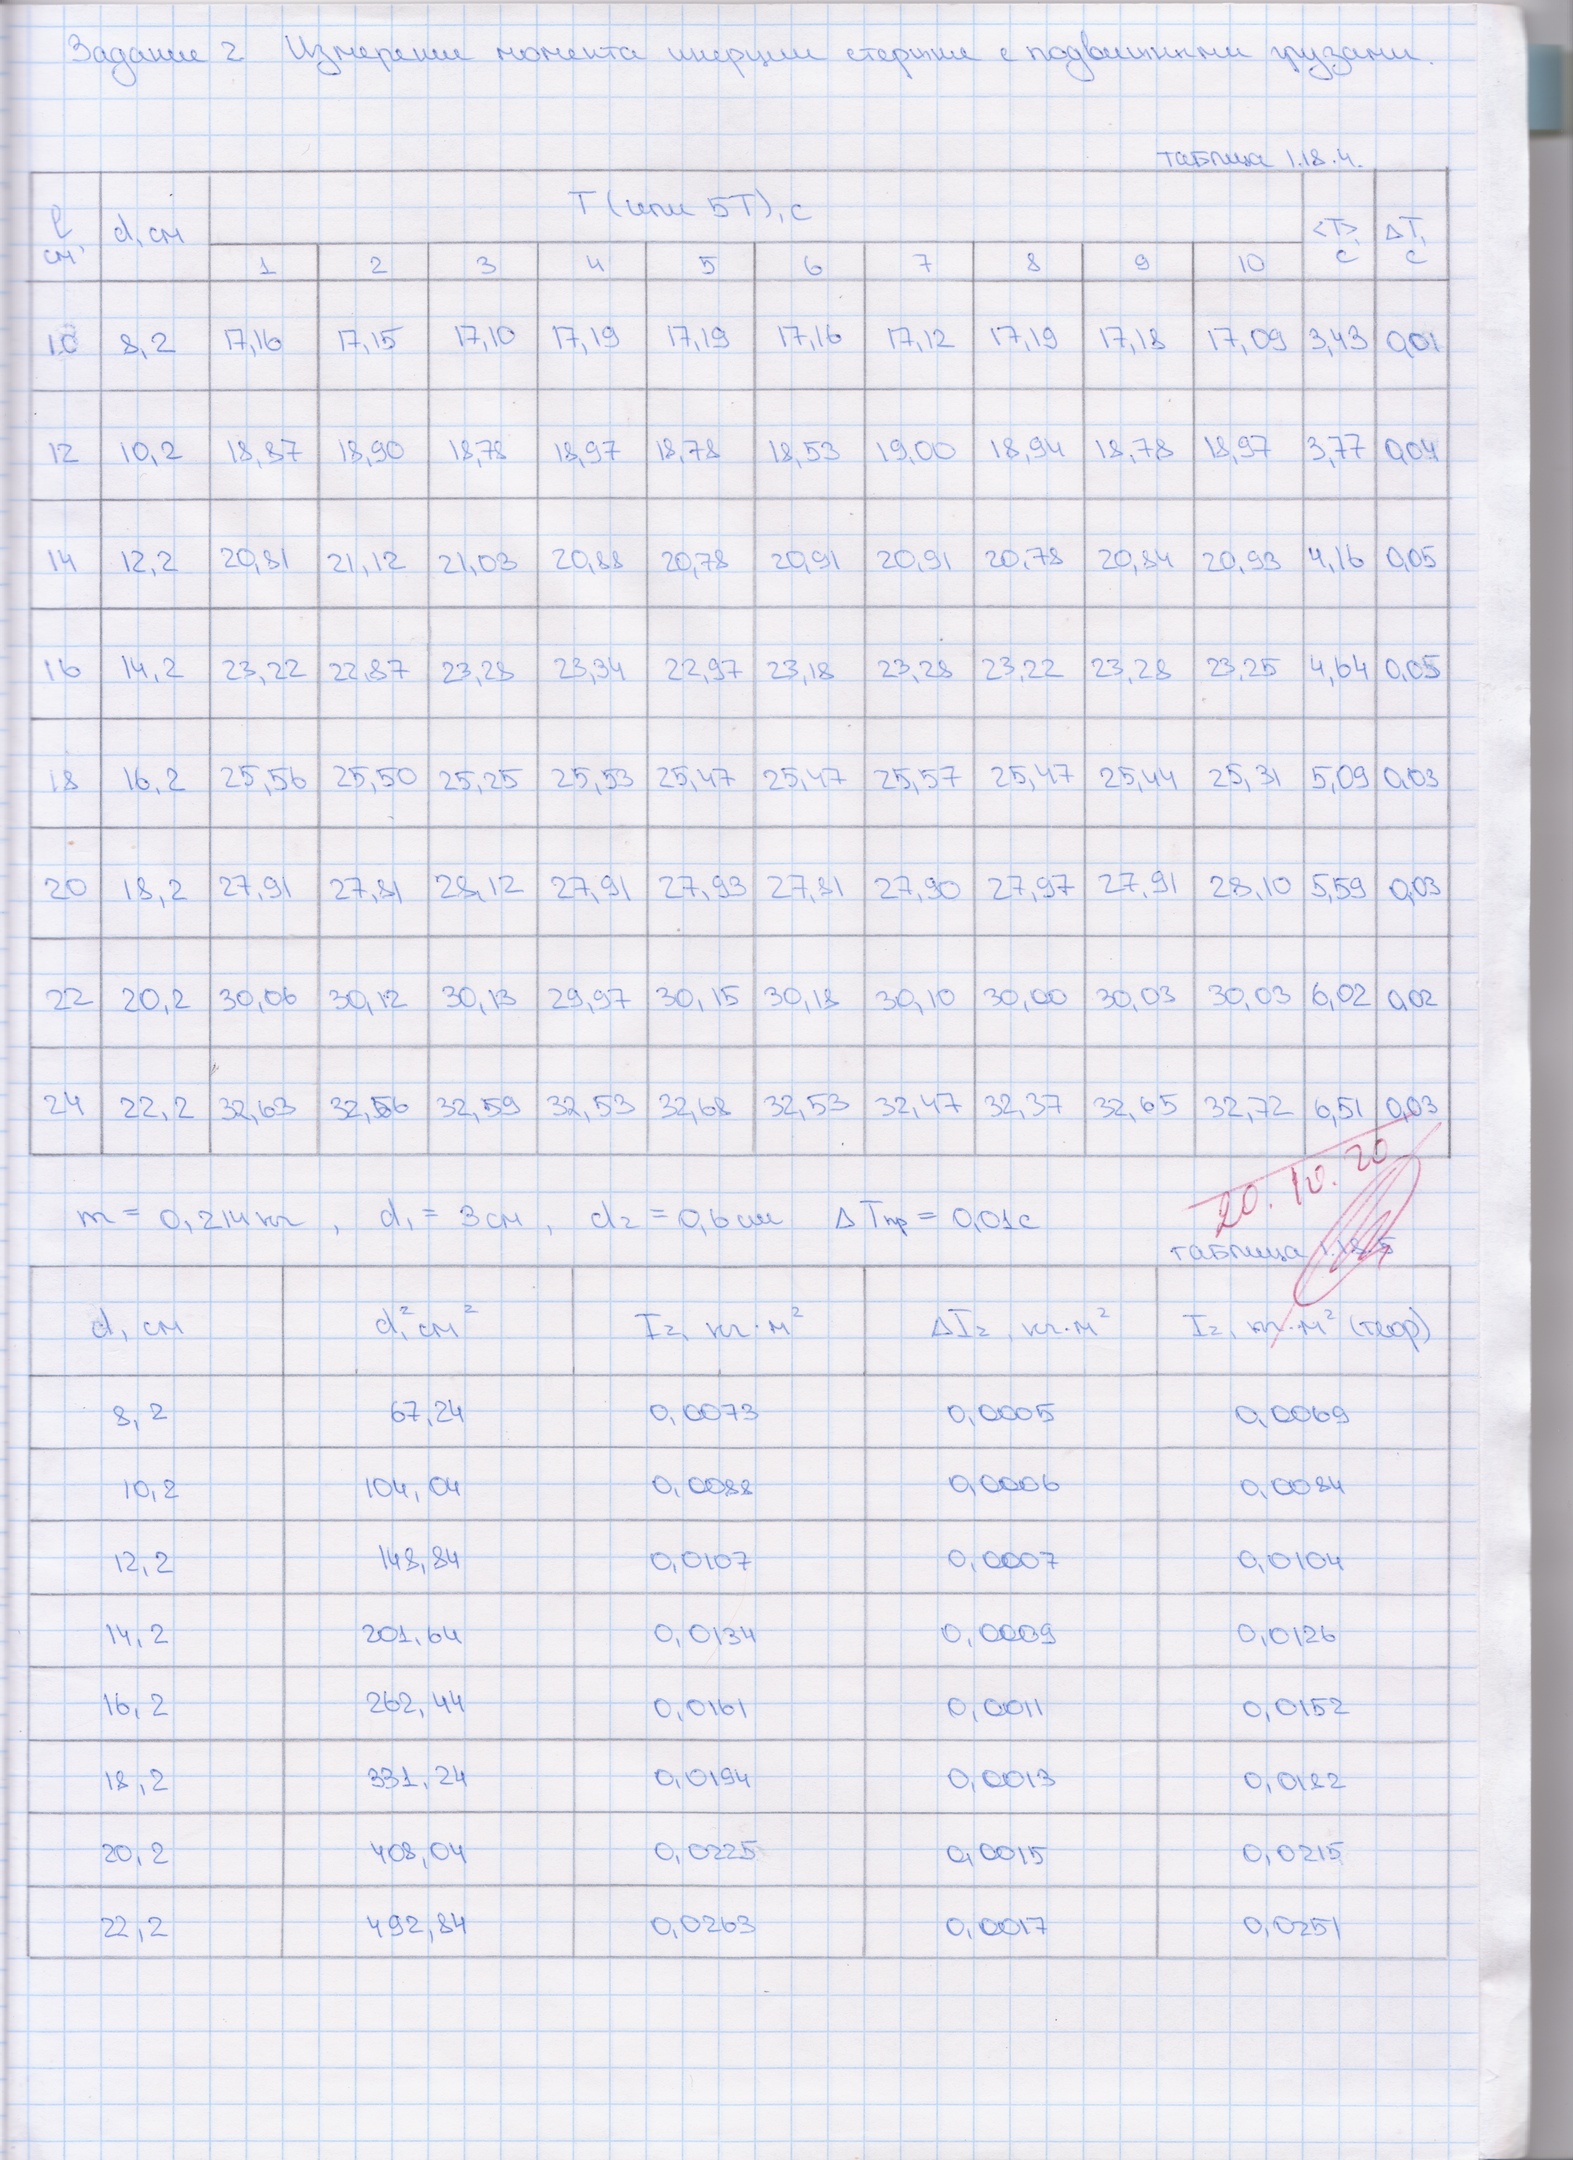 Задание 2 Измерение момента инерции стержня с подвешенными грузами.
таблица 1.18.4.
l, см d, см T (или 5T), с <T>, с ΔT, с
1 2 3 4 5 6 7 8 9 10
10 8,2 17,16 17,15 17,10 17,19 17,19 17,16 17,12 17,19 17,18 17,09 3,43 0,01
12 10,2 18,87 18,90 18,78 18,97 18,78 18,53 19,00 18,94 18,78 18,97 3,77 0,04
14 12,2 20,81 21,12 21,03 20,88 20,78 20,91 20,91 20,78 20,84 20,93 4,16 0,05
16 14,2 23,22 22,87 23,28 23,34 22,97 23,18 23,28 23,22 23,28 23,25 4,64 0,05
18 16,2 25,56 25,50 25,25 25,53 25,47 25,47 25,57 25,47 25,44 25,31 5,09 0,03
20 18,2 27,91 27,81 28,12 27,91 27,93 27,81 27,90 27,97 27,91 28,10 5,59 0,03
22 20,2 30,06 30,12 30,13 29,97 30,15 30,18 30,10 30,00 30,03 30,03 6,02 0,02
24 22,2 32,63 32,56 32,59 32,53 32,68 32,53 32,47 32,37 32,65 32,72 6,51 0,03
20.10.20
m = 0,214 кг, d₁ = 3 см, d₂ = 0,6 см ΔTпр = 0,01 с
таблица 1.18.5
d, см d², см² I₂, кг·м² ΔI₂, кг·м² I₂, кг·м² (теор)
8,2 67,24 0,0073 0,0005 0,0069
10,2 104,04 0,0088 0,0006 0,0084
12,2 148,84 0,0107 0,0007 0,0104
14,2 201,64 0,0134 0,0009 0,0126
16,2 262,44 0,0161 0,0011 0,0152
18,2 331,24 0,0194 0,0013 0,0182
20,2 408,04 0,0225 0,0015 0,0215
22,2 492,84 0,0263 0,0017 0,0251